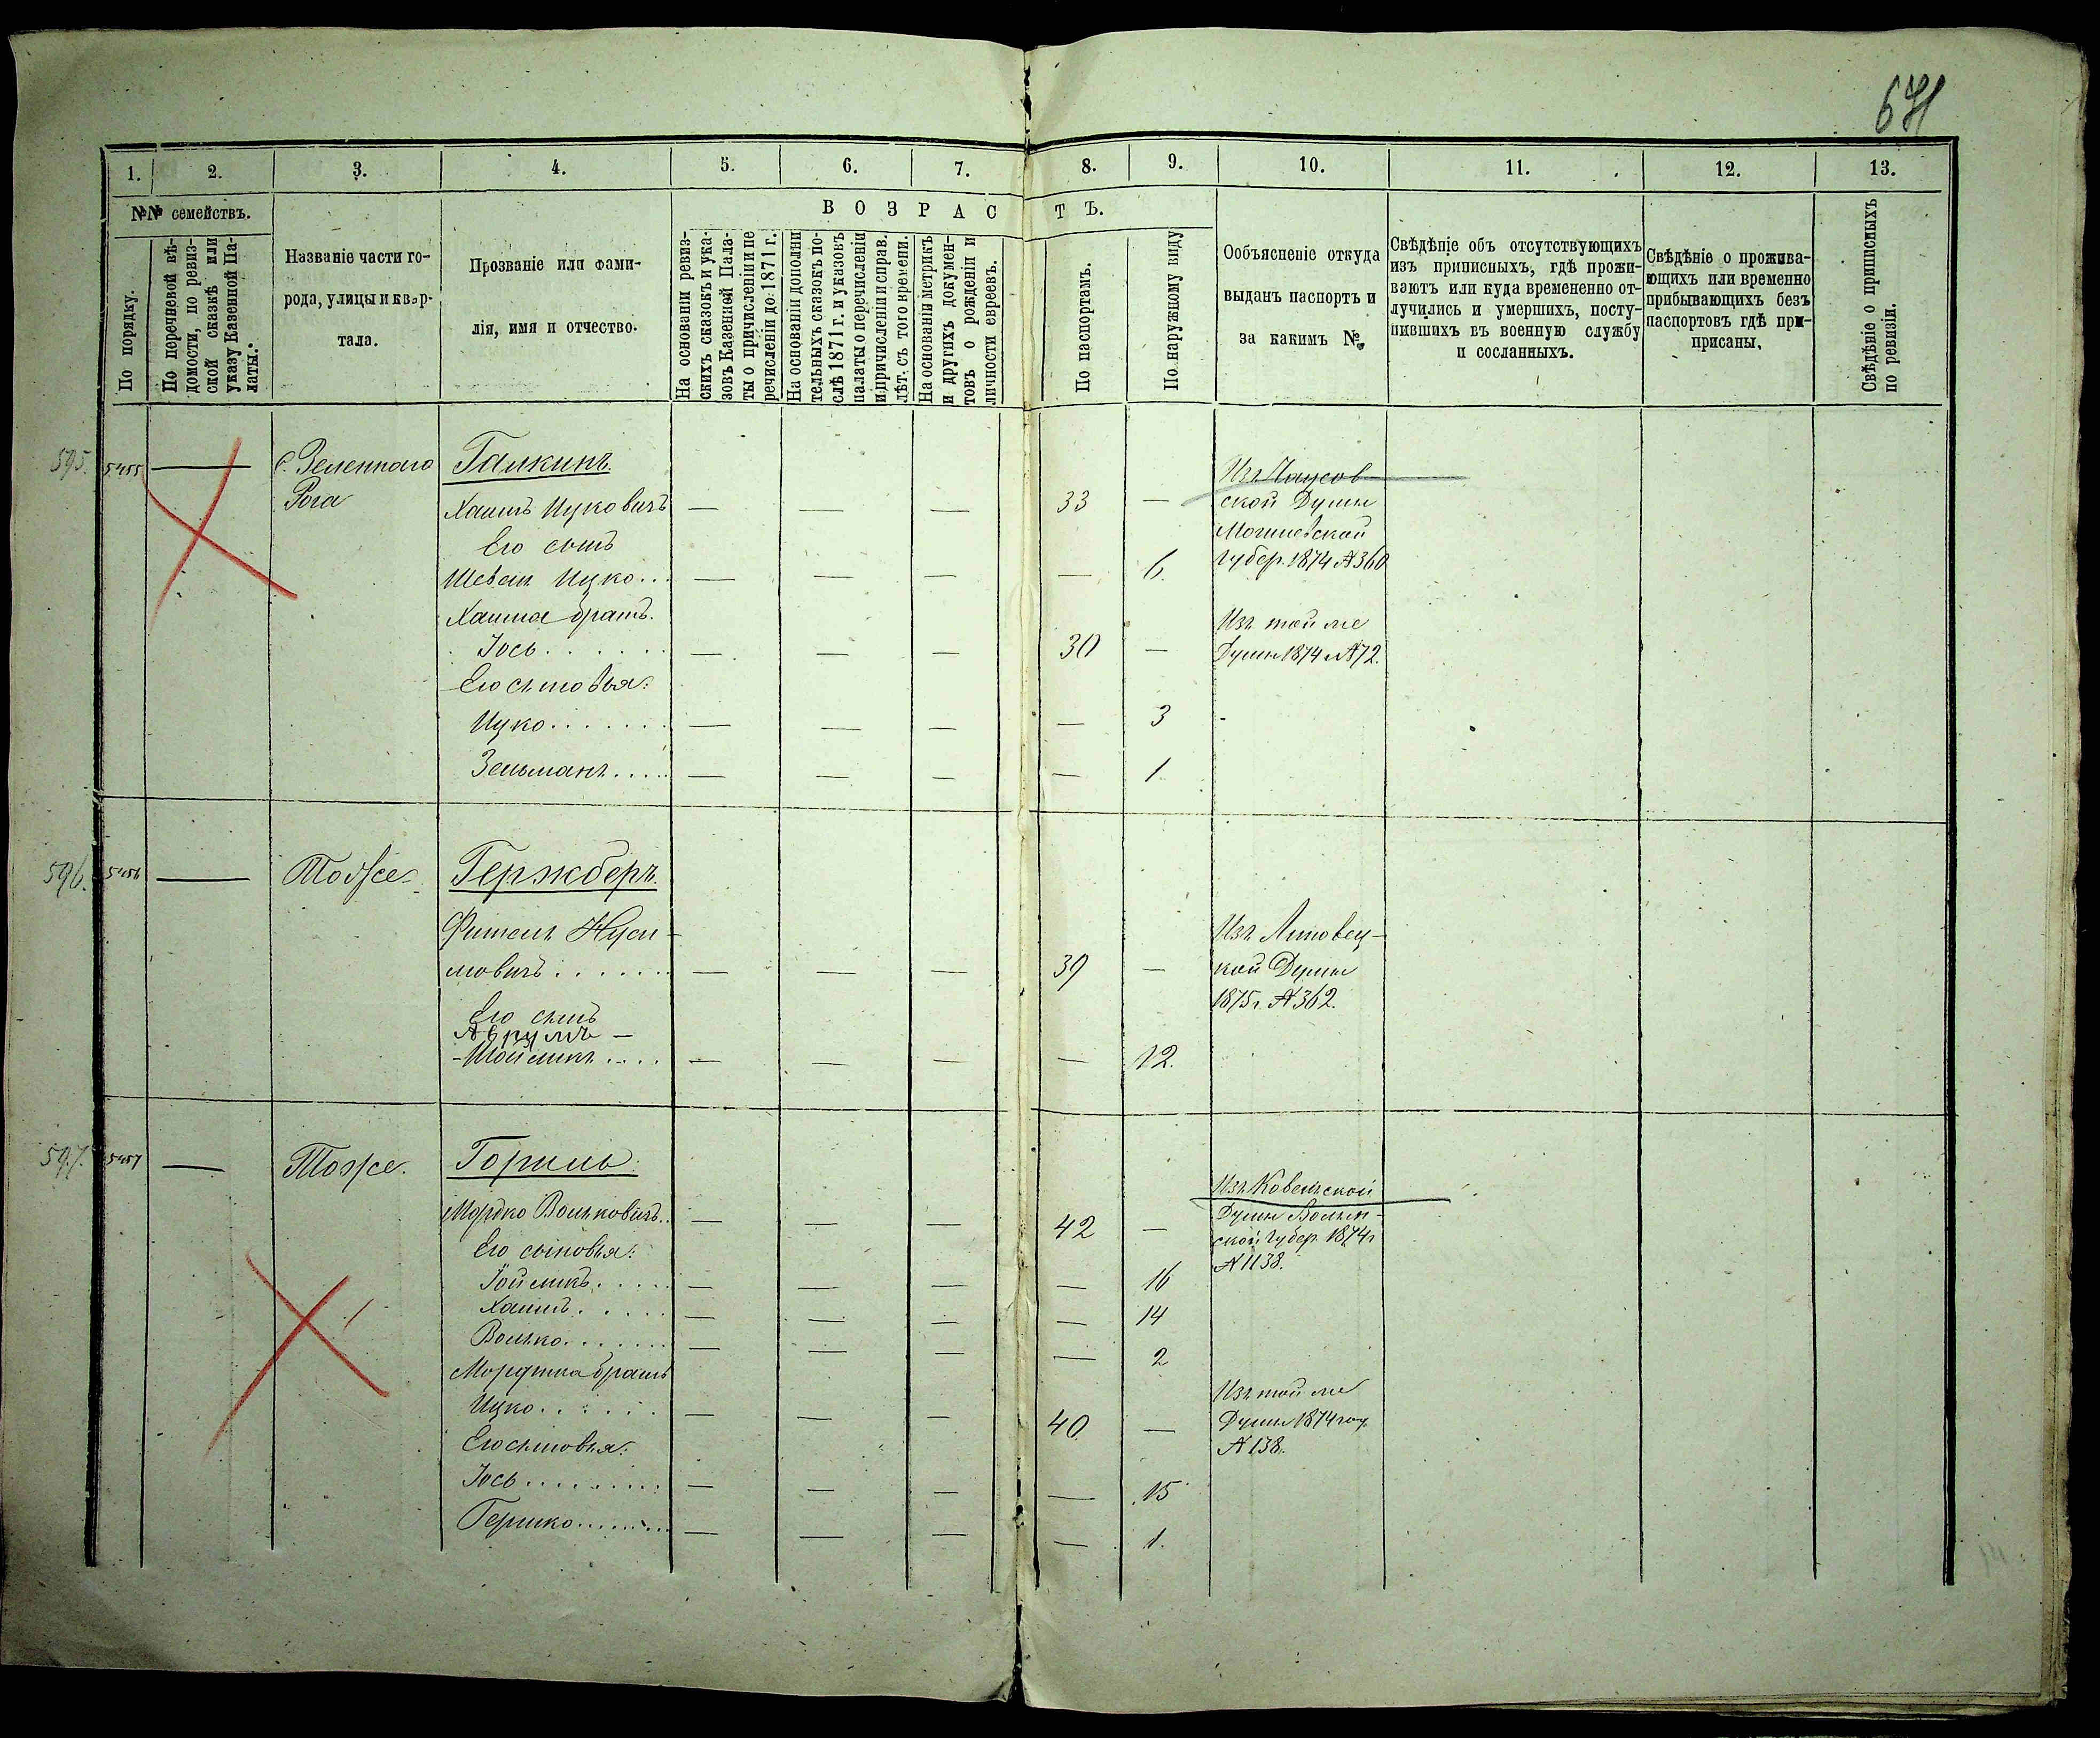 671
1. 2. 3. 4. 5. 6. 7. 8. 9. 10. 11. 12. 13.
№№ семействъ.
По порядку.
По перечневой вѣ-
домости, по ревиз-
ской сказкѣ или
указу Казенной Па-
латы.
Названіе части го-
рода, улицы и квар-
тала.
Прозваніе или фами-
лія, имя и отчество.
ВОЗРАСТЪ.
На основаніи ревиз-
скихъ сказокъ и ука-
зовъ Казенной Пала-
ты о причисленіи и пе
речисленіи до 1871 г.
На основаніи дополни
тельныхъ сказокъ по-
слѣ 1871 г. и указовъ
палаты о перечисленіи
и причисленіи и справ.
лѣт. съ того времени.
На основаніи метрикъ
и другихъ докумен-
товъ о рожденіи и
личности евреевъ.
По паспортамъ.
По наружному виду
Ообъясненіе откуда
выданъ паспортъ и
за какимъ №
Свѣдѣніе объ отсутствующихъ
изъ приписныхъ, гдѣ прожи-
ваютъ или куда времененно от-
лучились и умершихъ, посту-
пившихъ въ военную службу
и сосланныхъ.
Свѣдѣніе о прожива-
ющихъ или временно
прибывающихъ безъ
паспортовъ гдѣ при-
писаны.
Свѣдѣніе о приписныхъ
по ревизіи.
595. 5455 — с. Зеленнаго Галкинъ
Рога
Изъ Чаусов
Хаимъ Ицковичъ — — — 33 — ской Думы
Его сынъ Могилевской
Шевел Ицко... — — — — 6. Губер. 1874 №360
Хаима братъ. Изъ той же
Іось...... — — — 30 — Думы 1874 №72.
Его сыновья:
Ицко....... — — — — 3
Зельманъ..... — — — — 1
596. 5456 — Тоже Гержберъ
Фителъ Нуси- Изъ Липовец-
мовичъ...... — — — 39 — кой Думы
Его сынъ 1875 г. №362.
Аврумъ —
-Мойсикъ.... — — — — 12.
597. 5457 — Тоже. Горинь
Изъ Ковельской
Мордко Вольковичъ.. — — — 42 — Думы Волын-
Его сыновья: ской Губер. 1874 г
№1138.
Гойсикъ..... — — — — 16
Хаимъ..... — — — — 14
Волько....... — — — — 2
Мордкиа братъ Изъ той же
Ицко...... — — — 40 — Думы 1874 год
Его сыновья: №138.
Іось......... — — — — 15
Гершко........ — — — — 1.